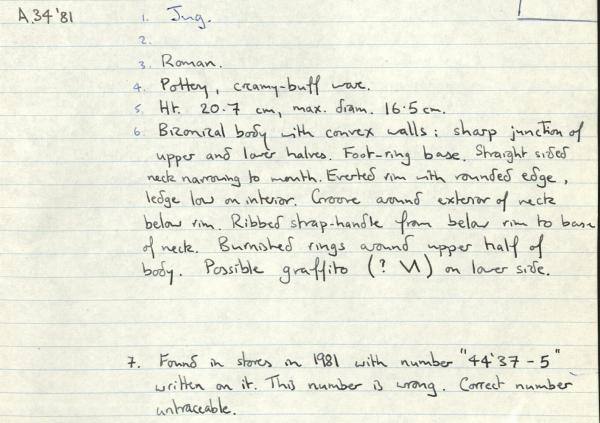 A.34'81
1. Jug.
2.
3. Roman.
4. Pottery, creamy-buff ware.
5. Ht. 20.7 cm, max. diam. 16.5 cm.
6. Biconical body with convex walls: sharp junction of
upper and lower halves. Foot-ring base. Straight sided
neck narrowing to mouth. Everted rim with rounded edge,
ledge low on interior. Groove around exterior of neck
below rim. Ribbed strap-handle from below rim to base
of neck. Burnished rings around upper half of
body. Possible graffito (? VI) on lower side.
7. Found in stores in 1981 with number "44'37-5"
written on it. This number is wrong. Correct number
untraceable.